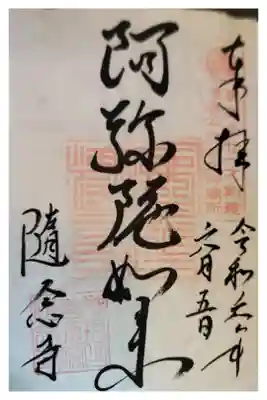 奉拝
令和六年
六月五日
阿弥陀如来
隨念寺